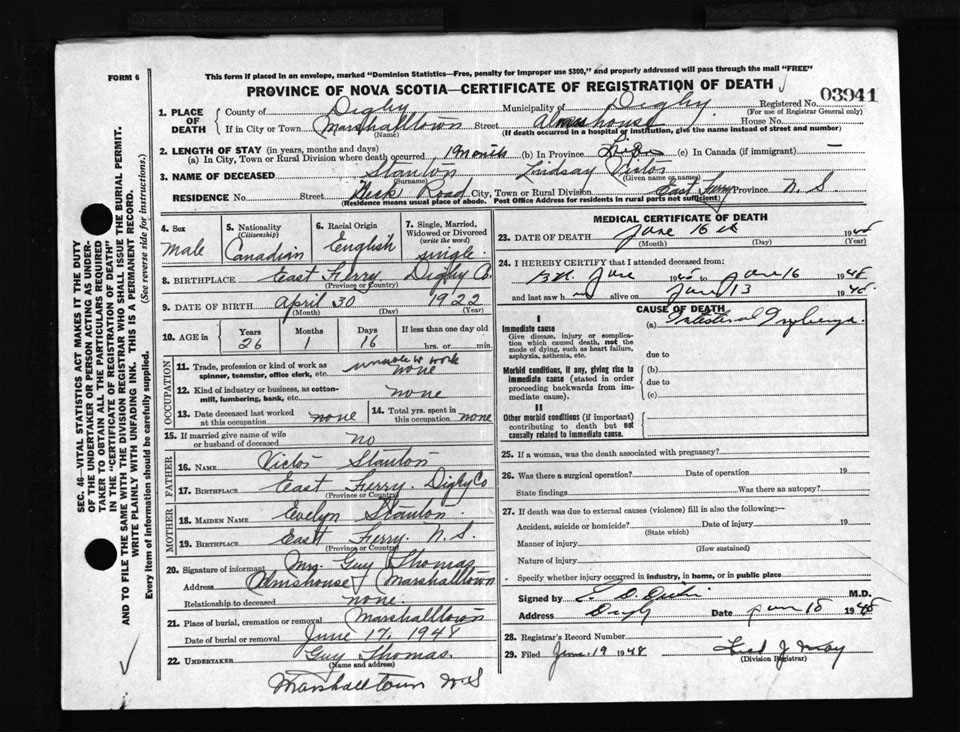 FORM 6
This form if placed in an envelope, marked "Dominion Statistics—Free, penalty for improper use $300," and properly addressed will pass through the mail "FREE"
PROVINCE OF NOVA SCOTIA—CERTIFICATE OF REGISTRATION OF DEATH
03941
1. PLACE OF DEATH
County of Digby Municipality of Digby Registered No.
(For use of Registrar General only)
If in City or Town Marshalltown Street Almshouse House No.
(Name) (If death occurred in a hospital or institution, give the name instead of street and number)
2. LENGTH OF STAY (in years, months and days)
(a) In City, Town or Rural Division where death occurred 1 Month (b) In Province Life (c) In Canada (if immigrant) —
3. NAME OF DECEASED Stanton Lindsay Victor
(Surname) (Given name or names)
RESIDENCE No. Street Road City, Town or Rural Division East Ferry Province N. S.
(Residence means usual place of abode. Post Office Address for residents in rural parts not sufficient)
4. Sex Male
5. Nationality (Citizenship) Canadian
6. Racial Origin English
7. Single, Married, Widowed or Divorced (write the word) single
8. BIRTHPLACE East Ferry Digby Co.
(Province or Country)
9. DATE OF BIRTH April 30 1922
(Month) (Day) (Year)
10. AGE in Years 26 Months 1 Days 16 If less than one day old
hrs. or min.
OCCUPATION
11. Trade, profession or kind of work as spinner, teamster, office clerk, etc. unable to work none
12. Kind of industry or business, as cotton-mill, lumbering, bank, etc. none
13. Date deceased last worked at this occupation none
14. Total yrs. spent in this occupation none
15. If married give name of wife or husband of deceased no
FATHER
16. NAME Victor Stanton
17. BIRTHPLACE East Ferry. Digby Co
(Province or Country)
MOTHER
18. MAIDEN NAME Evelyn Stanton
19. BIRTHPLACE East Ferry. N. S.
(Province or Country)
20. Signature of informant Mrs. Guy Thomas
Address Almshouse Marshalltown
Relationship to deceased none.
21. Place of burial, cremation or removal Marshalltown
Date of burial or removal June 17. 1948
22. UNDERTAKER Guy Thomas.
(Name and address)
Marshalltown N S
MEDICAL CERTIFICATE OF DEATH
23. DATE OF DEATH June 16th 1948
(Month) (Day) (Year)
24. I HEREBY CERTIFY that I attended deceased from:
June 1948 to June 16 1948
and last saw h alive on June 13 1948
CAUSE OF DEATH
I
Immediate cause
Give disease, injury or complication which caused death, not the mode of dying, such as heart failure, asphyxia, asthenia, etc.
(a) Intestinal
due to
Morbid conditions, if any, giving rise to immediate cause (stated in order proceeding backwards from immediate cause).
(b)
due to
(c)
II
Other morbid conditions (if important) contributing to death but not causally related to immediate cause.
25. If a woman, was the death associated with pregnancy?
26. Was there a surgical operation? Date of operation 19
State findings Was there an autopsy?
27. If death was due to external causes (violence) fill in also the following:—
Accident, suicide or homicide? Date of injury 19
(State which)
Manner of injury
(How sustained)
Nature of injury
Specify whether injury occurred in industry, in home, or in public place
Signed by M.D.
Address Digby Date June 18 1948
28. Registrar's Record Number
29. Filed June 19 1948
(Division Registrar)
SEC. 46—VITAL STATISTICS ACT MAKES IT THE DUTY
OF THE UNDERTAKER OR PERSON ACTING AS UNDER-
TAKER TO OBTAIN ALL THE PARTICULARS REQUIRED
IN THE "CERTIFICATE OF REGISTRATION OF DEATH"
AND TO FILE THE SAME WITH THE DIVISION REGISTRAR WHO SHALL ISSUE THE BURIAL PERMIT.
WRITE PLAINLY WITH UNFADING INK. THIS IS A PERMANENT RECORD.
Every item of information should be carefully supplied. (See reverse side for instructions.)